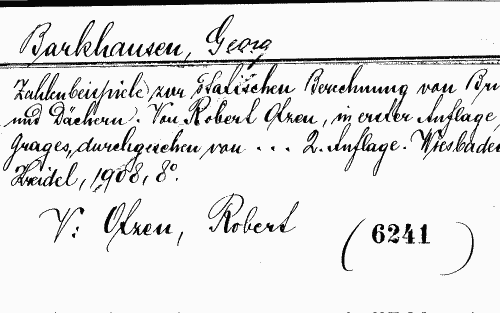 Barkhausen, Georg
Zahlenbeispiele zur statischen Berechnung von Brü
und Dächern. Von Robert Otzen, in erster Auflage,
Grages, durchgesehen von ... 2. Auflage. Wiesbaden
Kreidel, 1908, 8°.
V: Otzen, Robert
(6241)